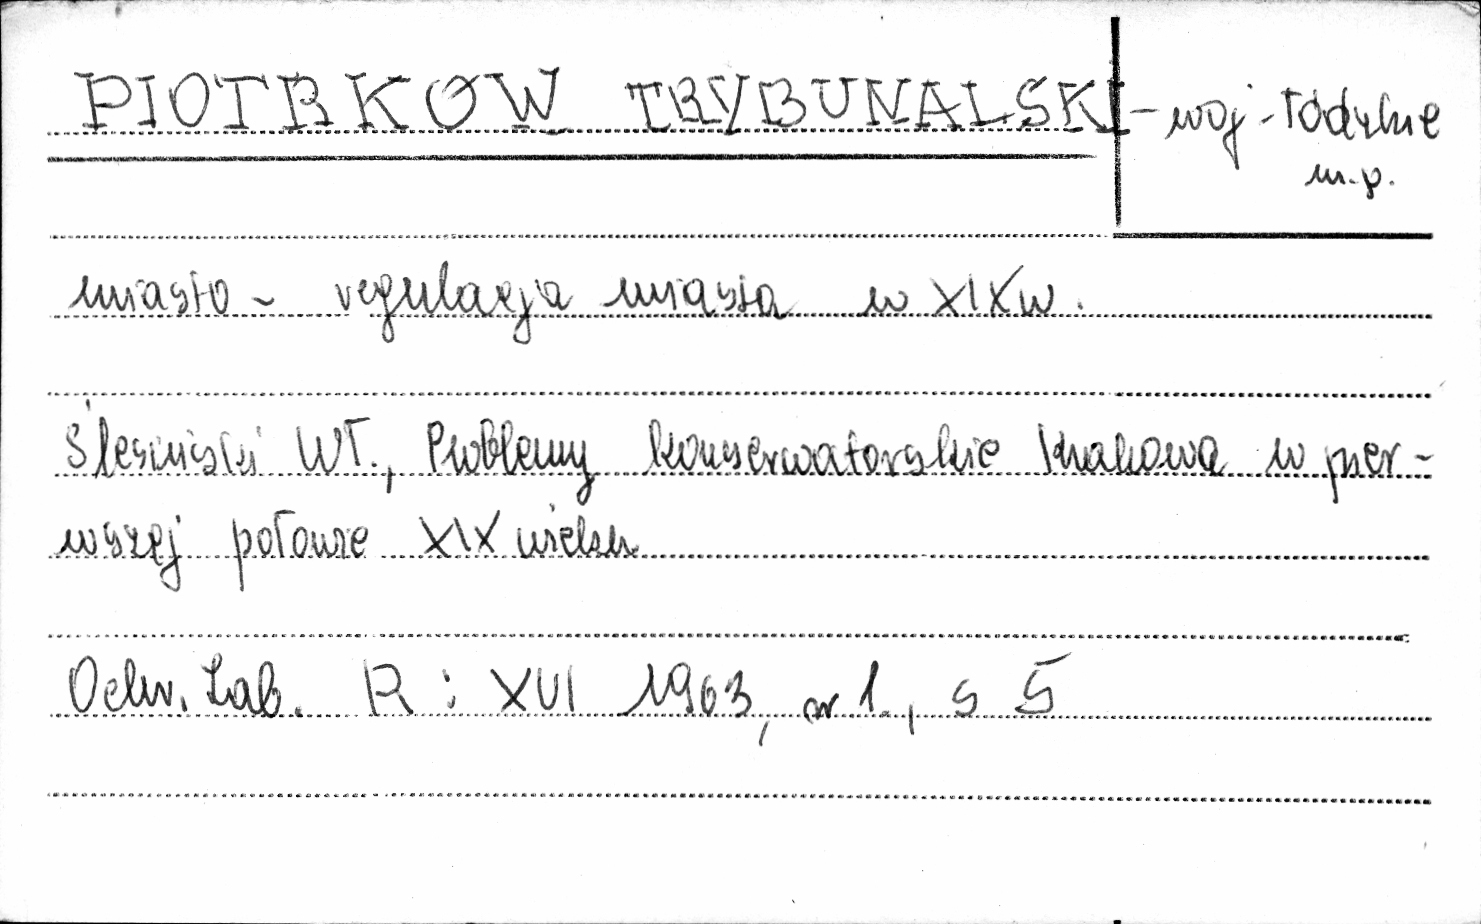 PIOTRKOW TRYBUNALSKI - woj - łódzkie
m.p.
miasto - regulacja miasta w XIX w.
Ślesiński Wł., Problemy konserwatorskie Krakowa w pier-
wszej połowie XIX wieku
Ochr. Zab. R : XVI 1963, nr 1., s 5